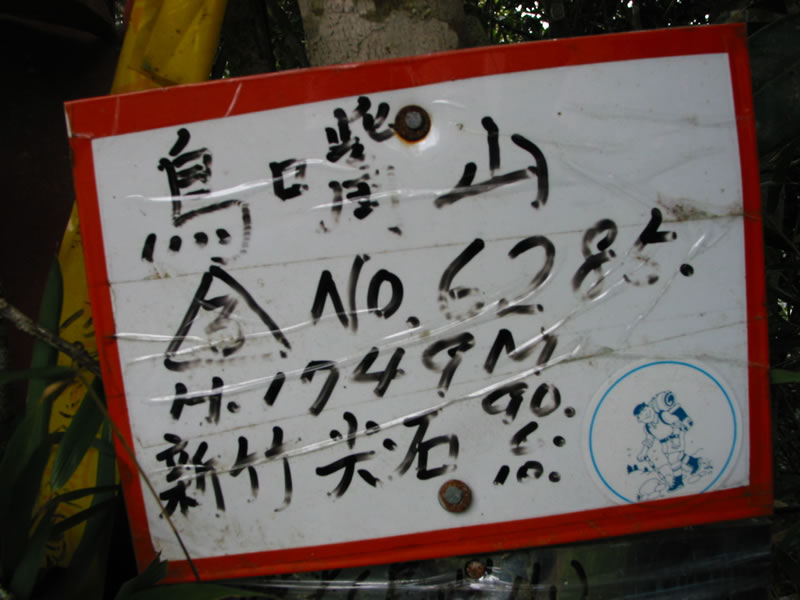 鳥嘴山
3 No. 6285.
H. 1749M
新竹尖石
90.
6.
10.